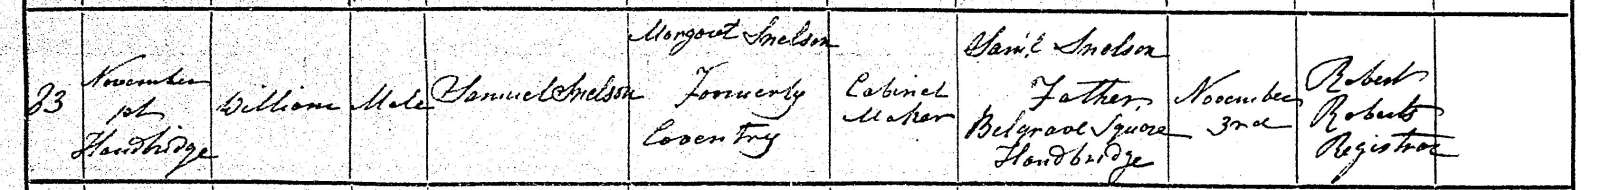 83
November
1st
Handbridge
William
Male
Samuel Snelson
Margaret Snelson
Formerly
Coventry
Cabinet
Maker
Sam'l Snelson
Father
Belgrave Square
Handbridge
November
3rd
Robert
Roberts
Registrar